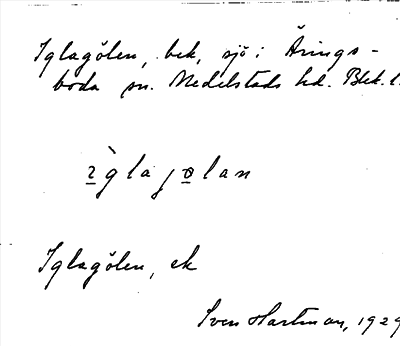 Iglagölen, bek, sjö i Ärings-
boda sn. Medelstads hd. Blek. l.
ìglagölan
Iglagölen, ek
Sven Hartman, 1929